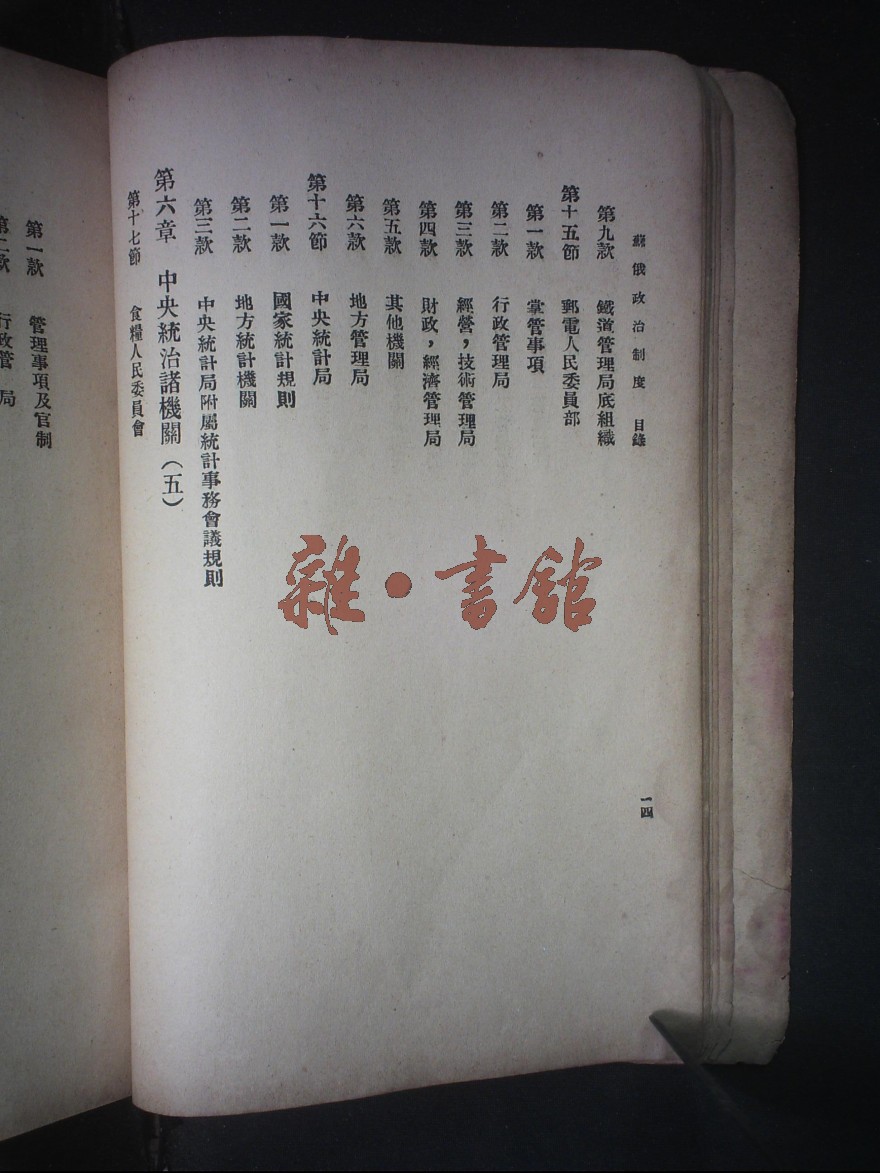 蘇俄政治制度　目錄
第九款　鐵道管理局底組織
第十五節　郵電人民委員部
第一款　掌管事項
第二款　行政管理局
第三款　經營，技術管理局
第四款　財政，經濟管理局
第五款　其他機關
第六款　地方管理局
第十六節　中央統計局
第一款　國家統計規則
第二款　地方統計機關
第三款　中央統計局附屬統計事務會議規則
第六章　中央統治諸機關（五）
第十七節　食糧人民委員會
一四
第一款　管理事項及官制
第二款　行政管　局
雜·書館